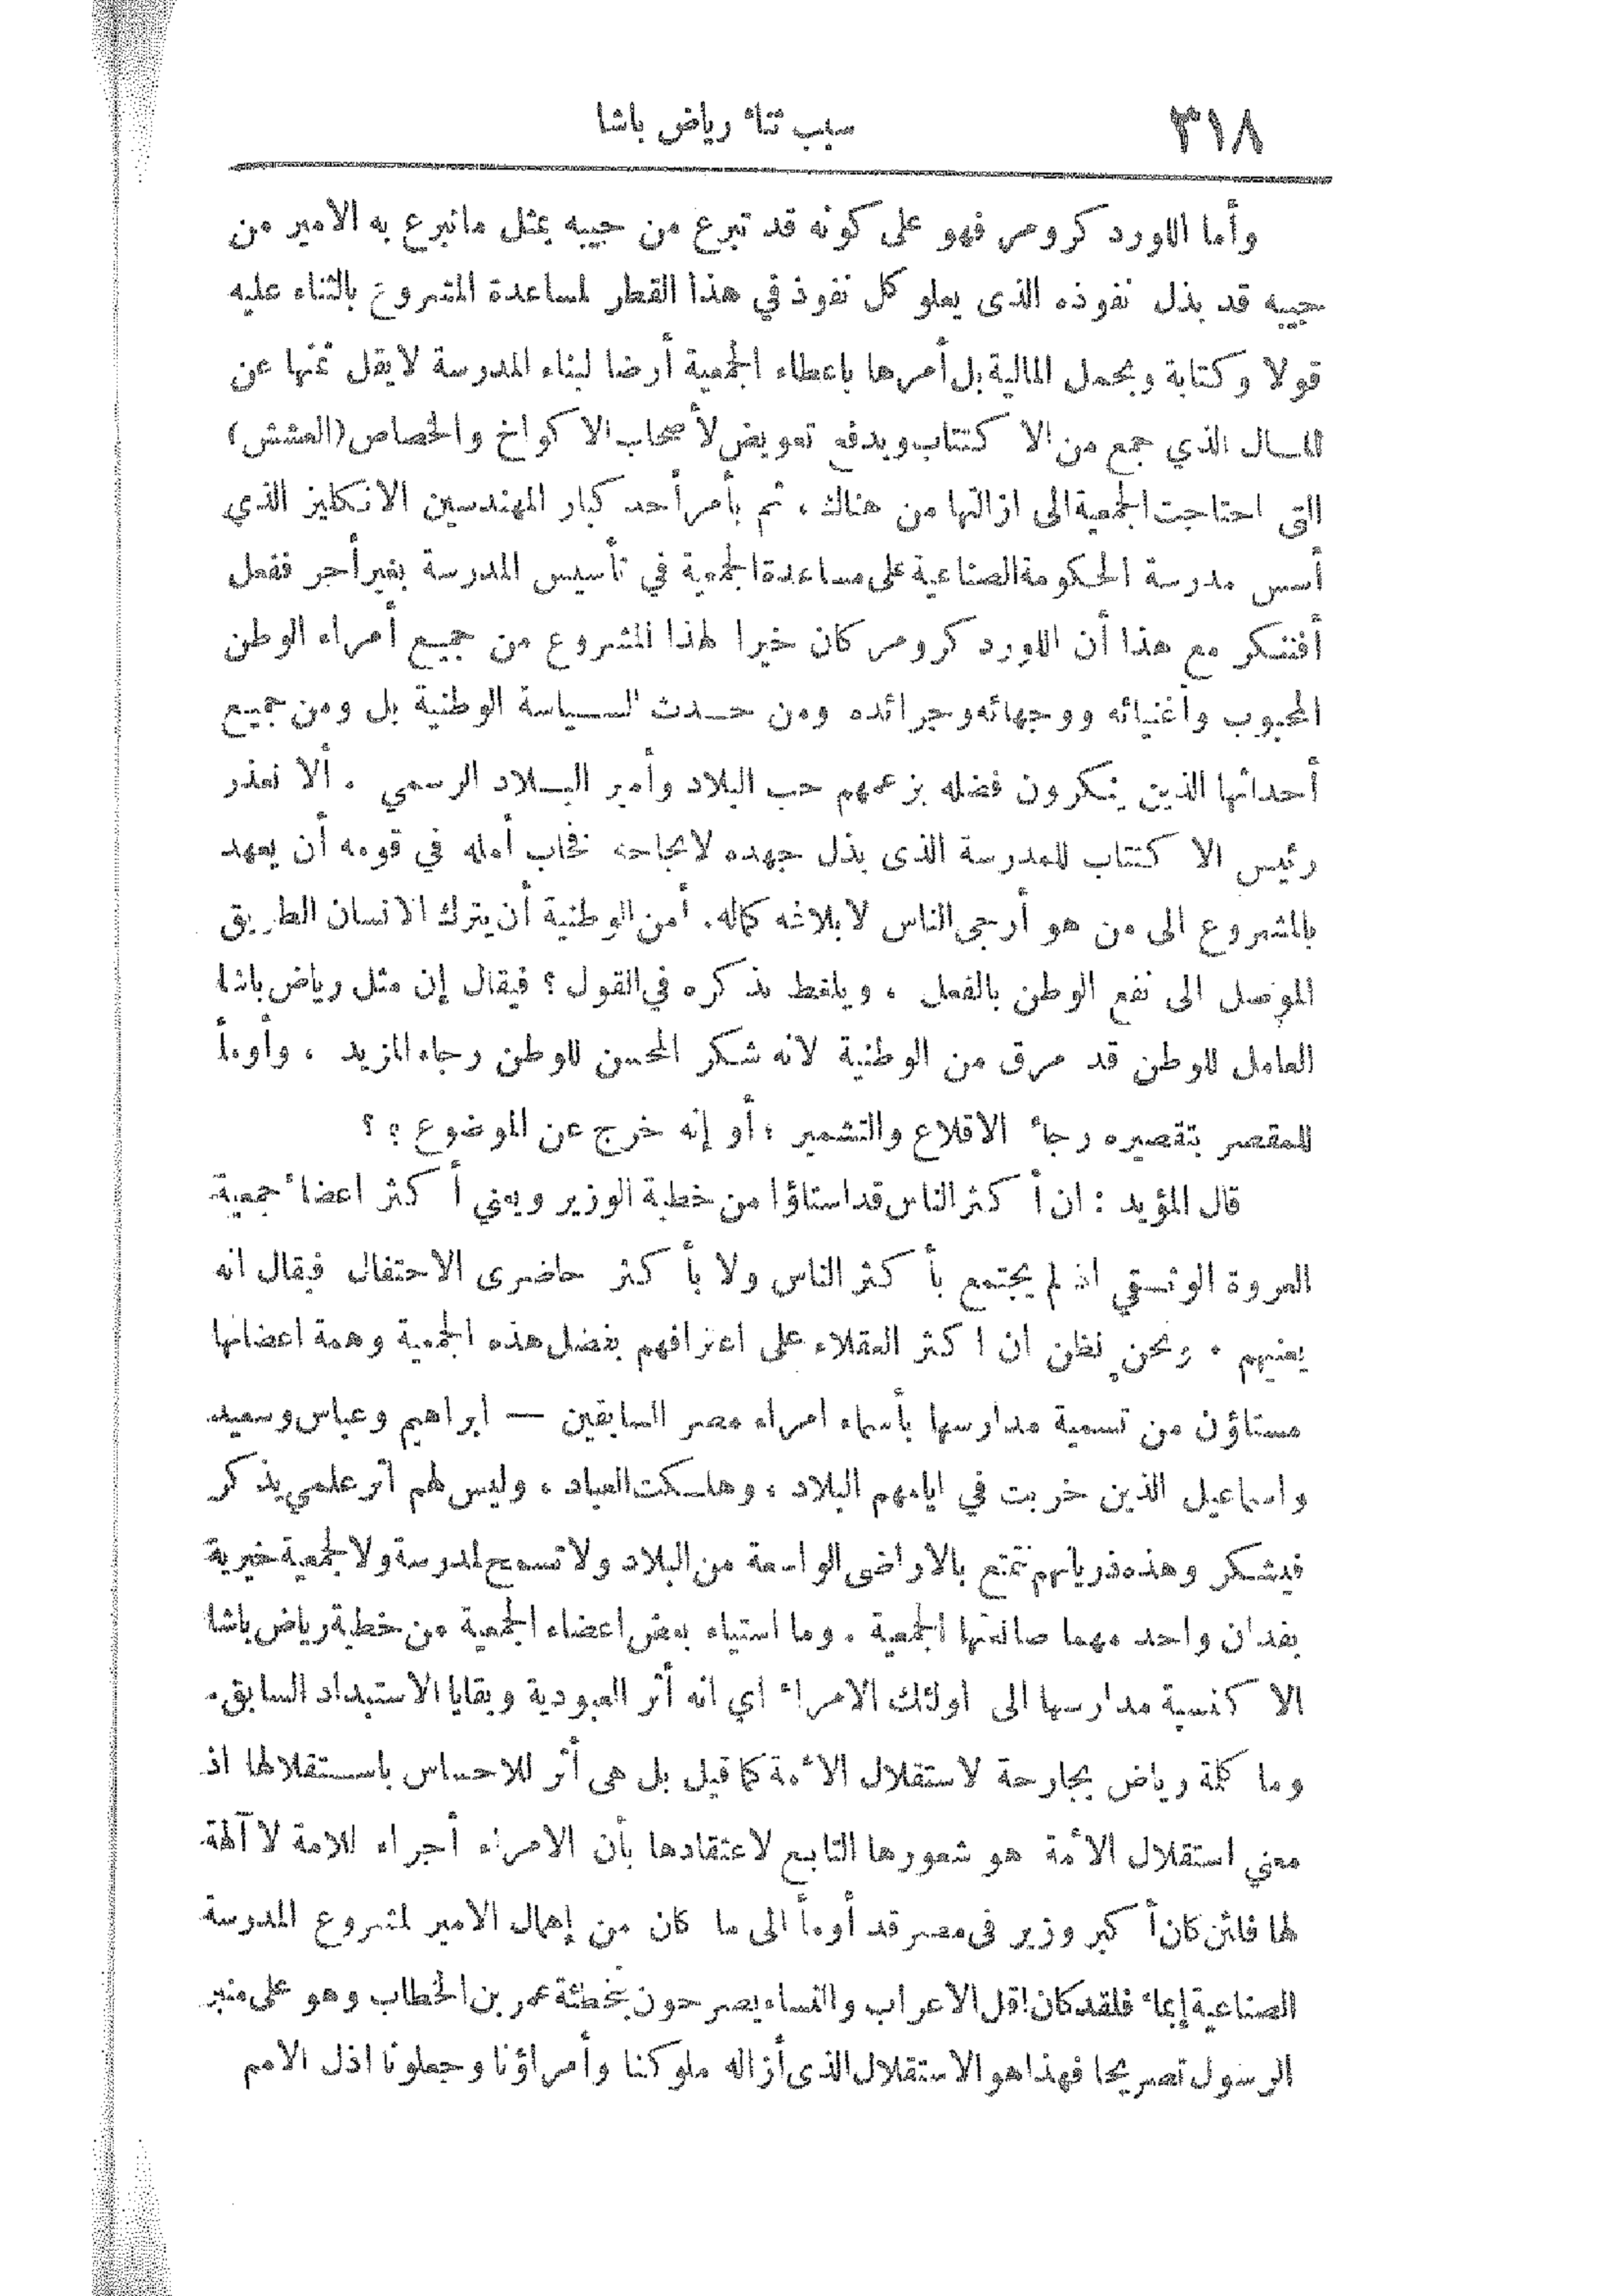 ٣١٨ سبب ثناء رياض باشا
وأما اللورد كرومر فهو على كونه قد تبرع من جيبه بمثل ماتبرع به الامير من
جيبه قد بذل نفوذه الذى يعلو كل نفوذ في هذا القطر لمساعدة المشروع بالثناء عليه
قولا وكتابة وبحمل المالية بل أمرها باعطاء الجمعية أرضا لبناء المدرسة لايقل ثمنها عن
المال الذي جمع من الاكتتاب وبدفع تعويض لأصحاب الاكواخ والخصاص (العشش)
التى احتاجت الجمعية الى ازالتها من هناك ، ثم بأمر أحد كبار المهندسين الانكليز الذي
أسس مدرسة الحكومة الصناعية على مساعدة الجمعية في تأسيس المدرسة بغير أجر ففعل
أفننكر مع هذا أن اللورد كرومر كان خيرا لهذا المشروع من جميع أمراء الوطن
المحبوب وأغنيائه ووجهائه وجرائده ومن حدث السياسة الوطنية بل ومن جميع
أحداثها الذين ينكرون فضله بزعمهم حب البلاد وأمير البلاد الرسمي . ألا نعذر
رئيس الاكتتاب للمدرسة الذى بذل جهده لانجاحه فخاب أمله في قومه أن يعهد
بالمشروع الى من هو أرجى الناس لابلاغه كماله. أمن الوطنية أن يترك الانسان الطريق
الموصل الى نفع الوطن بالفعل ، ويلغط بذكره في القول ؟ فيقال إن مثل رياض باشا
العامل للوطن قد مرق من الوطنية لانه شكر المحسن للوطن رجاء المزيد ، وأومأ
للمقصر بتقصيره رجاء الاقلاع والتشمير ؛ أو إنه خرج عن الموضوع ؛ ؟
قال المؤيد : ان أكثر الناس قد استاؤا من خطبة الوزير ويعني أكثر اعضاء جمعية
العروة الوثقي اذ لم يجتمع بأكثر الناس ولا بأكثر حاضرى الاحتفال فيقال انه
يعنيهم . ونحن نظن ان اكثر العقلاء على اعترافهم بفضل هذه الجمعية وهمة اعضائها
مستاؤن من تسمية مدارسها بأسماء امراء مصر السابقين — ابراهيم وعباس وسعيد
واسماعيل الذين خربت في ايامهم البلاد ، وهلكت العباد ، وليس لهم أثر علمي يذكر
فيشكر وهذه ذرياتهم تتمتع بالاراضى الواسعة من البلاد ولا تسمح لمدرسة ولا لجمعية خيرية
بفدان واحد مهما صانعتها الجمعية . وما استياء بعض اعضاء الجمعية من خطبة رياض باشا
الا كنسبة مدارسها الى اولئك الامراء اي انه أثر العبودية وبقايا الاستبداد السابق.
وما كلمة رياض بجارحة لاستقلال الأمة كما قيل بل هى أثر للاحساس باستقلالها اذ
معني استقلال الأمة هو شعورها التابع لاعتقادها بأن الامراء أجراء للامة لا آلهة
لها فلئن كان أكبر وزير فى مصر قد أومأ الى ما كان من إهمال الامير لمشروع المدرسة
الصناعية إيماء فلقد كان اقل الاعراب والنساء يصرحون بتخطئة عمر بن الخطاب وهو على منبر
الرسول تصريحا فهذا هو الاستقلال الذى أزاله ملوكنا وأمراؤنا وجعلونا اذل الامم